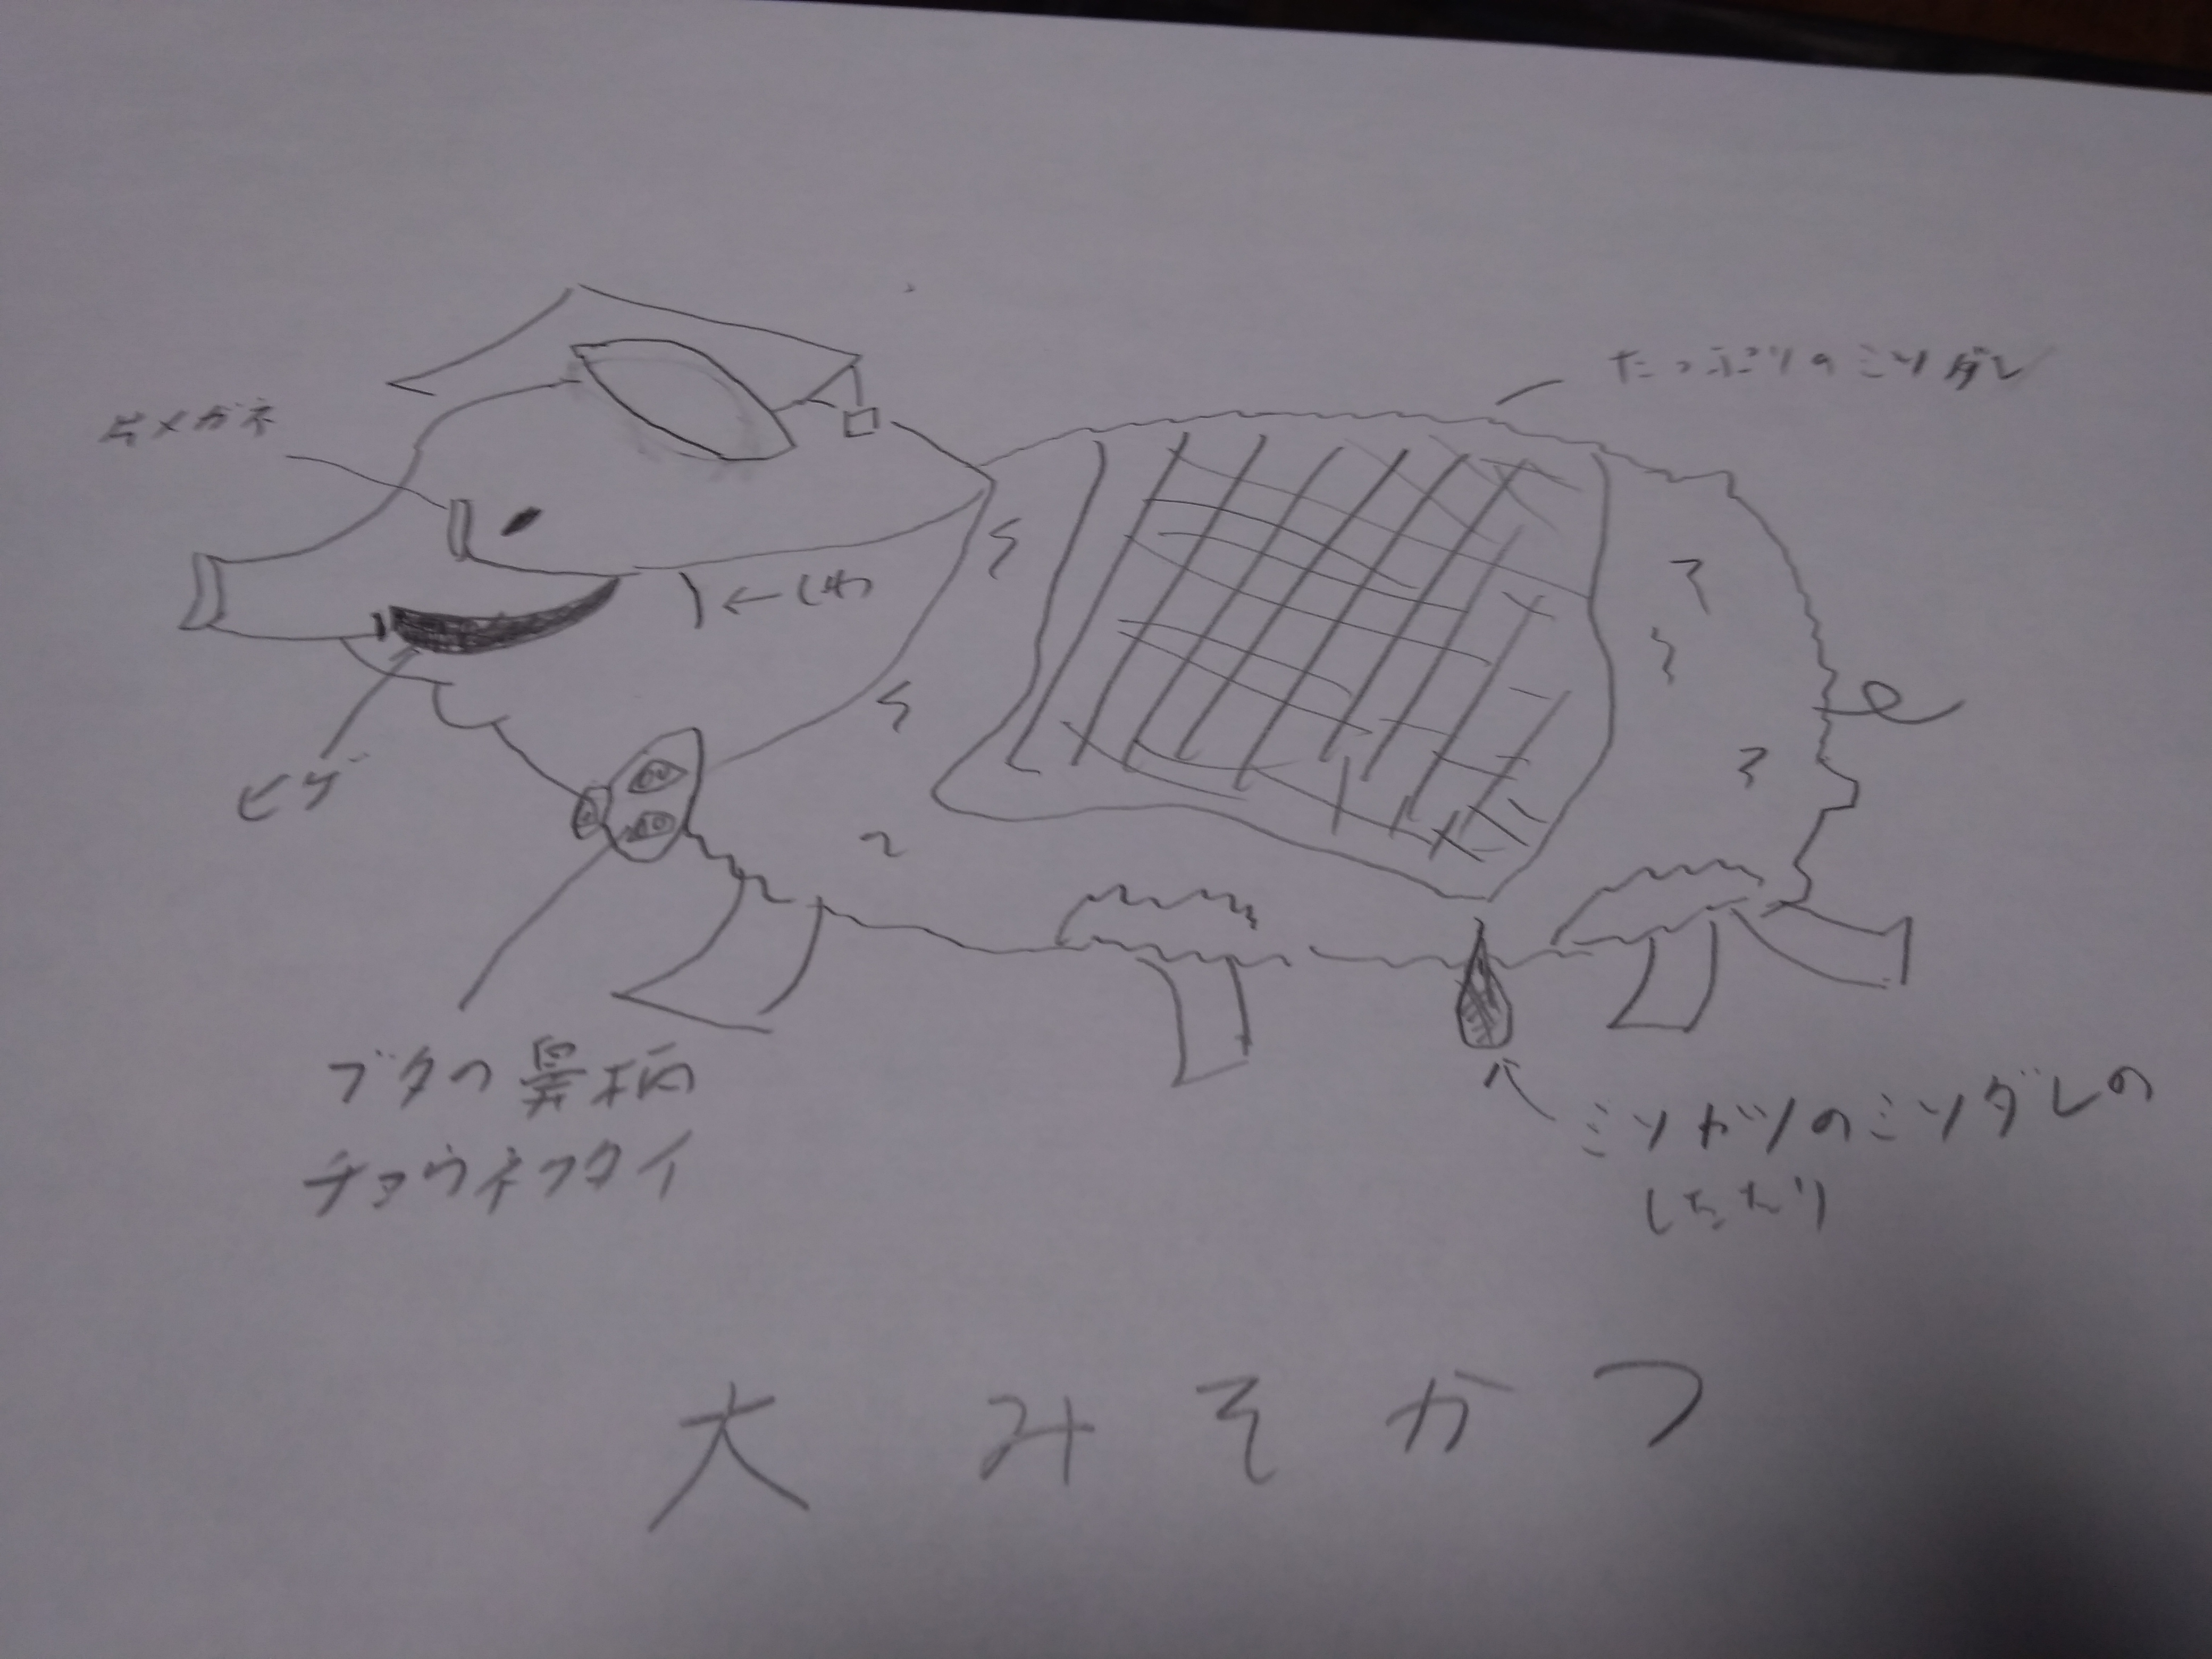 たっぷりのミソダレ
片メガネ
←しわ
ヒゲ
ブタの鼻柄
チョウネクタイ
ミソカツのミソダレの
したたり
大みそかつ